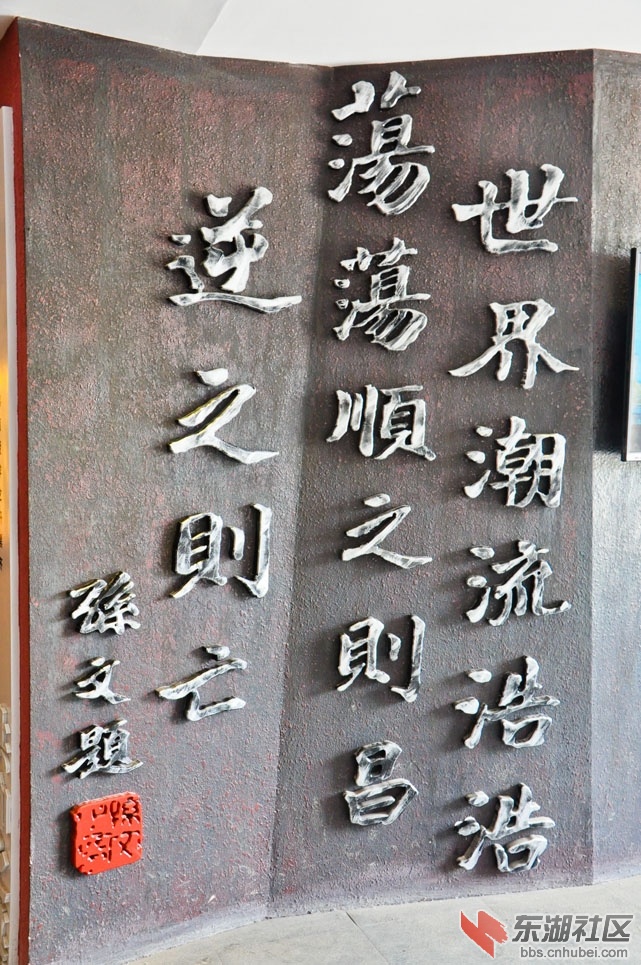 世界潮流浩浩
蕩蕩順之則昌
逆之則亡
孫文題
东湖社区
bbs.cnhubei.com